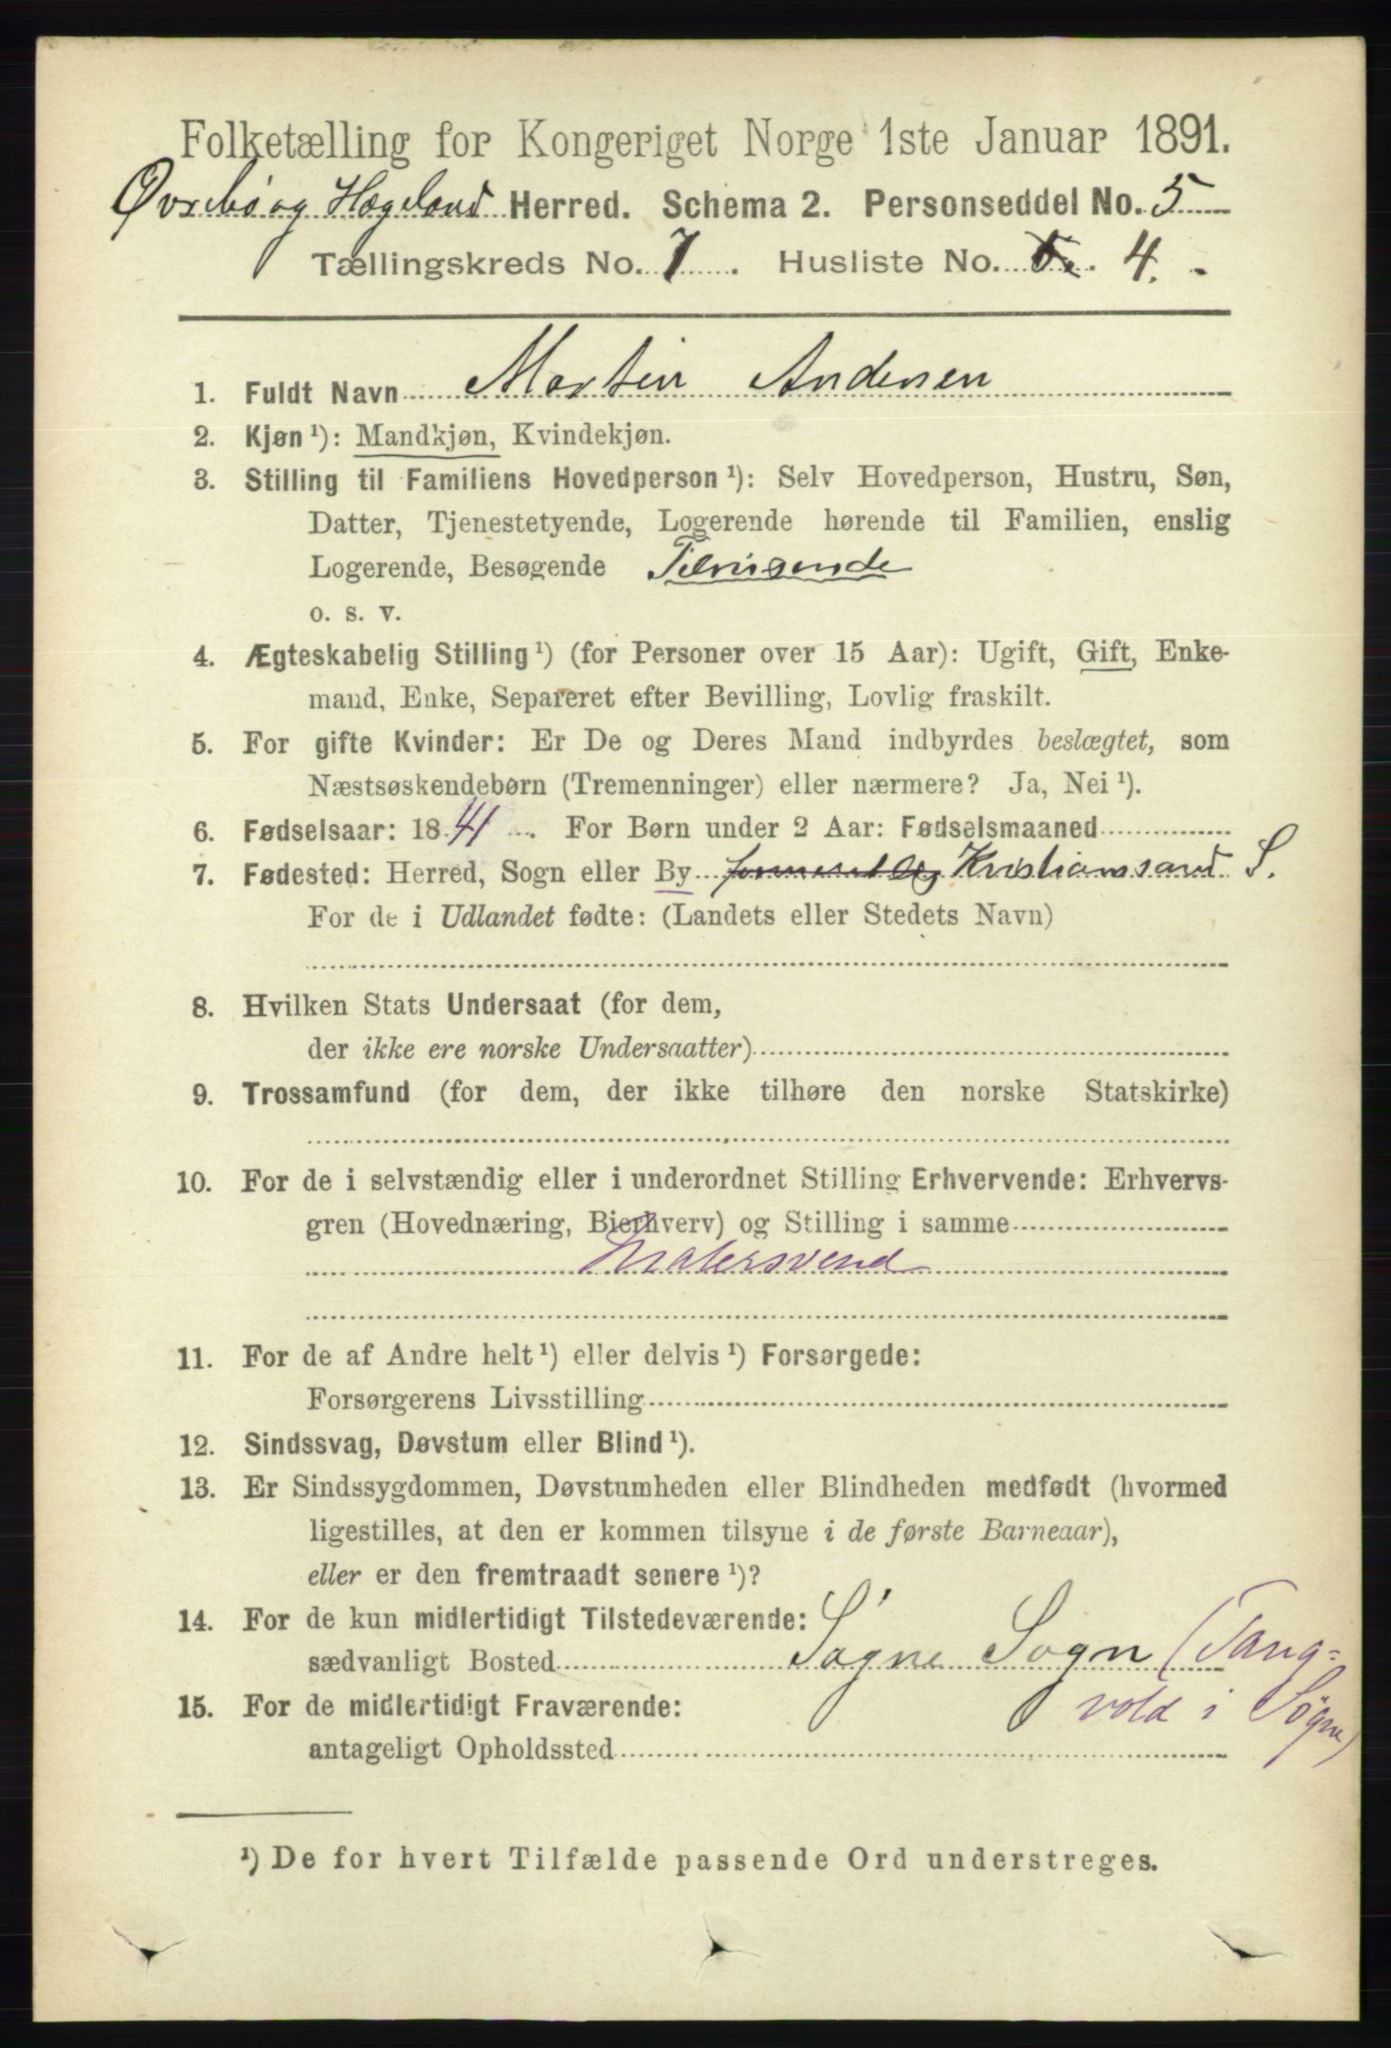 Folketælling for Kongeriget Norge 1ste Januar 1891.
Øvrebø og Hægeland Herred. Schema 2. Personseddel No. 5
Tællingskreds No. 7. Husliste No. 4.
1. Fuldt Navn Martin Andersen
2. Kjøn ¹): Mandkjøn, Kvindekjøn.
3. Stilling til Familiens Hovedperson ¹): Selv Hovedperson, Hustru, Søn,
Datter, Tjenestetyende, Logerende hørende til Familien, enslig
Logerende, Besøgende
o. s. v.
4. Ægteskabelig Stilling ¹) (for Personer over 15 Aar): Ugift, Gift, Enke-
mand, Enke, Separeret efter Bevilling, Lovlig fraskilt.
5. For gifte Kvinder: Er De og Deres Mand indbyrdes beslægtet, som
Næstsøskendebørn (Tremenninger) eller nærmere? Ja, Nei ¹).
6. Fødselsaar: 1841. For Børn under 2 Aar: Fødselsmaaned
7. Fødested: Herred, Sogn eller By Kristianssand S.
For de i Udlandet fødte: (Landets eller Stedets Navn)
8. Hvilken Stats Undersaat (for dem,
der ikke ere norske Undersaatter)
9. Trossamfund (for dem, der ikke tilhøre den norske Statskirke)
10. For de i selvstændig eller i underordnet Stilling Erhvervende: Erhvervs-
gren (Hovednæring, Bierhverv) og Stilling i samme
Malersvend
11. For de af Andre helt ¹) eller delvis ¹) Forsørgede:
Forsørgerens Livsstilling
12. Sindssvag, Døvstum eller Blind ¹).
13. Er Sindssygdommen, Døvstumheden eller Blindheden medfødt (hvormed
ligestilles, at den er kommen tilsyne i de første Barneaar),
eller er den fremtraadt senere ¹)?
14. For de kun midlertidigt Tilstedeværende:
sædvanligt Bosted Søgne Sogn (Tang=
15. For de midlertidigt Fraværende: vold i Søgne)
antageligt Opholdssted
¹) De for hvert Tilfælde passende Ord understreges.